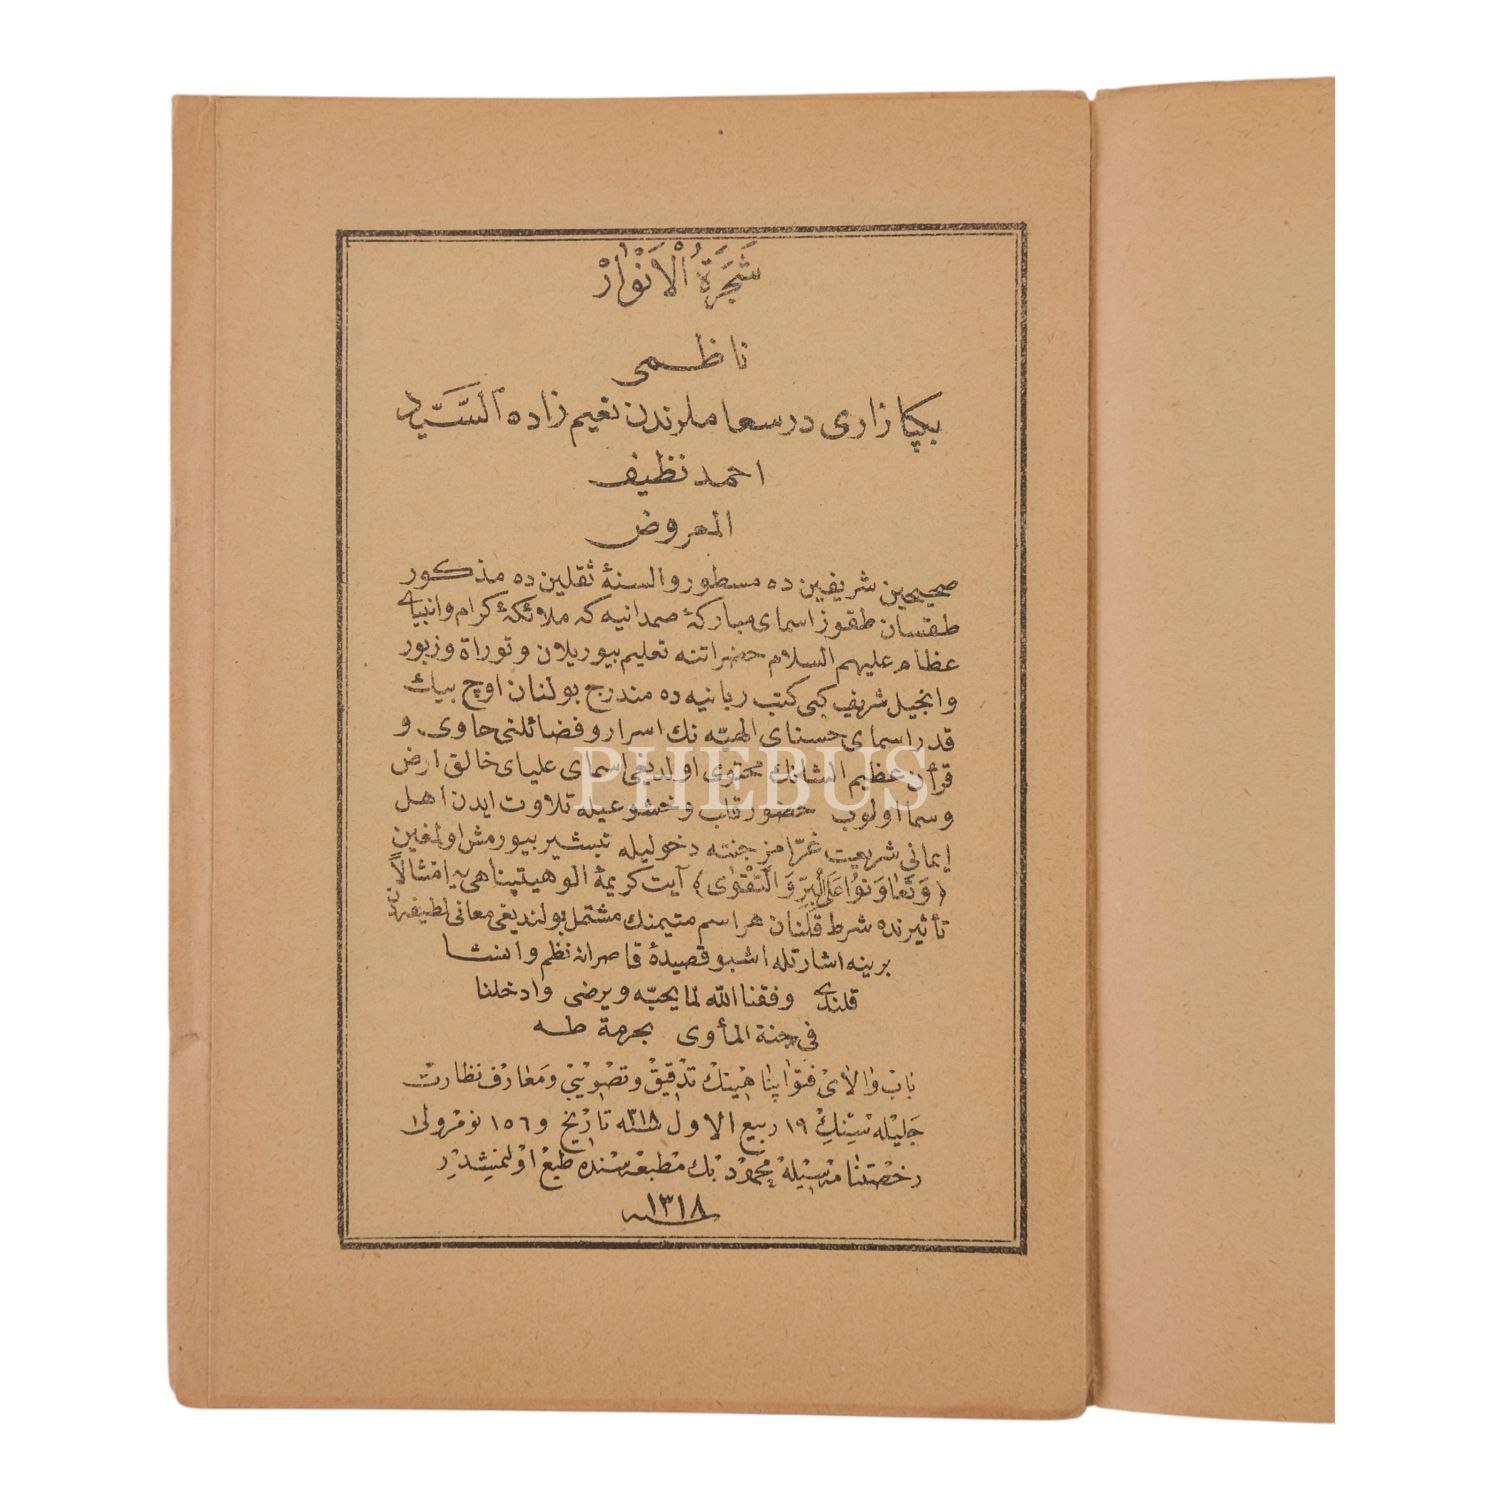 شَجَرَةُ الْاَنْوَارْ
ناظمى
بكپازارى درسعاملرندن نعيم زاده السَّيِّد
احمد نظيف
المعروض
صحيحين شريفين ده مسطور والسنهٔ ثقلين ده مذكور
طقسان طقوز اسماى مباركهٔ صمدانيه كه ملائكهٔ كرام وانبياى
عظام عليهم السلام حضراتنه تعليم بيوريلان وتوراة وزبور
وانجيل شريف كبى كتب ربانيه ده مندرج بولنان اوچ بيك
قدر اسماى حسناى الهيّه نك اسرار وفضائلنى حاوى و
قرأن عظيم الشانك محتوى اولديغى اسماى علياى خالق ارض
وسما اولوب حضور قلب وخشوعيله تلاوت ايدن اهل
إيمانى شريعت غرّامز جنته دخوليله تبشير بيورمش اولمغين
﴿وَتَعَاوَنُوا عَلَى الْبِرِّ وَالتَّقْوٰى﴾ آيت كريمهٔ الوهيتپناهى يه امتثالاً
تأثيرنده شرط قلنان هر اسم متيمنك مشتمل بولنديغى معانئ لطيفه دن
برينه اشارتله اشبو قصيدهٔ قاصرانه نظم وانشا
قلندى وفقنا الله لما يحبّه ويرضى وادخلنا
فى جنة المأوى بحرمة طه
باب والاى فتوا پناهينك تدقيق وتصويبى ومعارف نظارت
جليله سينك ١٩ ربيع الاول سنه ٣١٨ تاريخ و ١٥٦ نومرولى
رخصتنامه سيله محمود بك مطبعه سنده طبع اولنمشدر
سنه ١٣١٨
PHEBUS